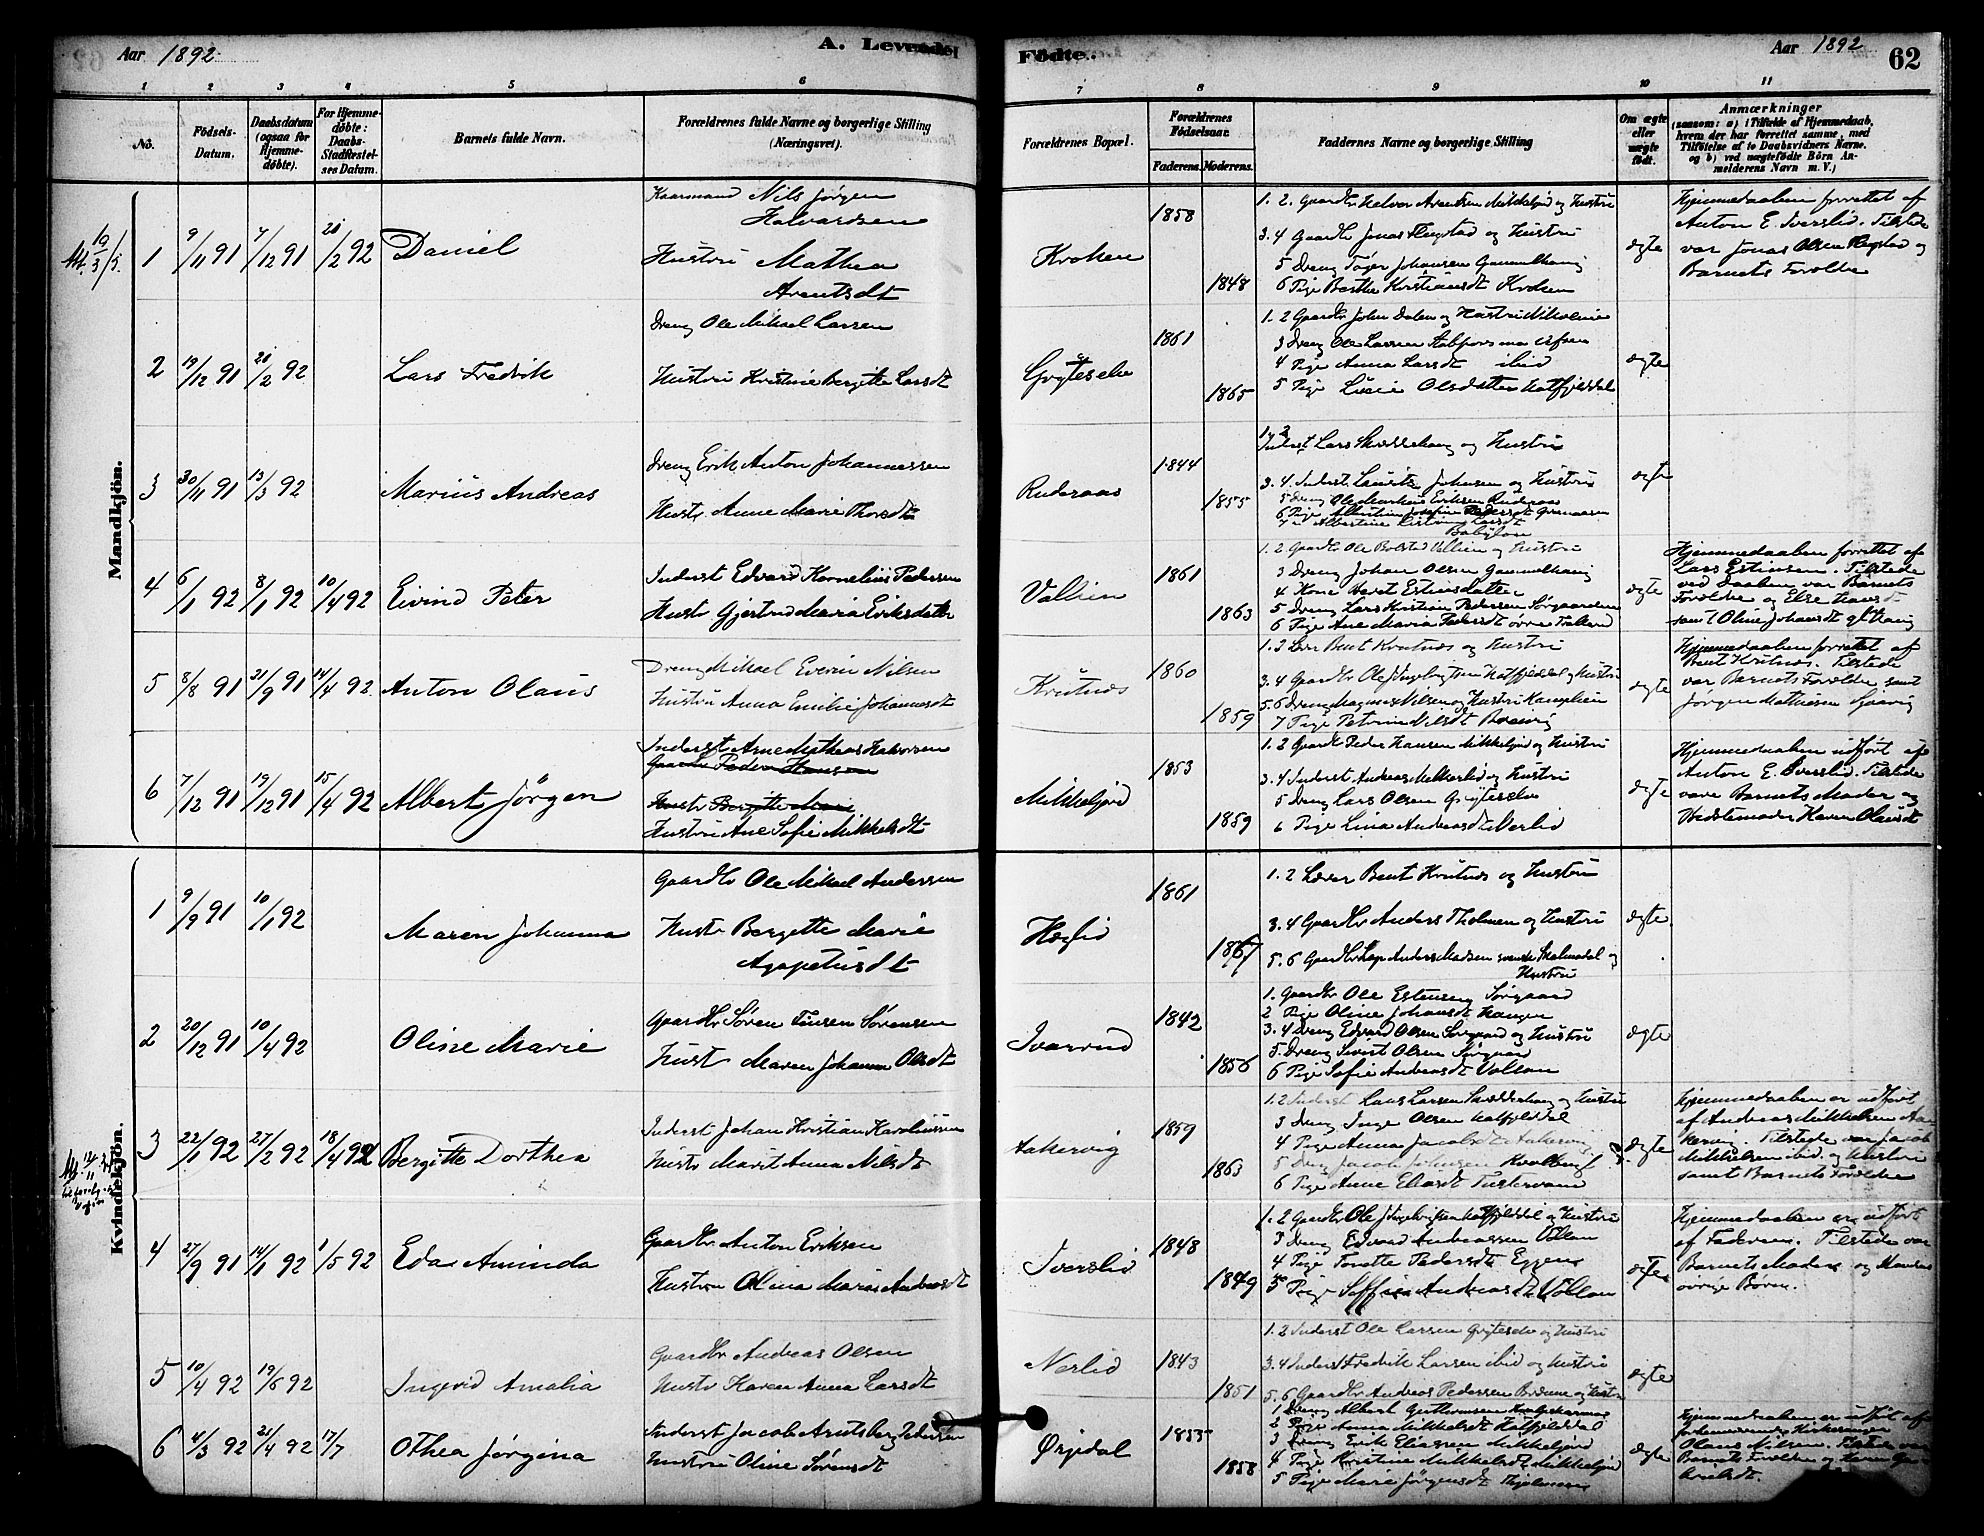 Aar 1892
A. Levende
Födte.
Aar 1892
62
1 2 3 4 5 6 7 8 9 10 11
No.
Födsels-Datum.
Daabsdatum (ogsaa for Hjemme-döbte).
For Hjemme-döbte: Daabs-Stadfæstel-ses Datum.
Barnets fulde Navn.
Forældrenes fulde Navne og borgerlige Stilling (Næringsvei).
Forældrenes Bopæl.
Forældrenes Födselsaar.
Faderens. Moderens.
Faddernes Navne og borgerlige Stilling
Om ægte eller uægte födt.
Anmærkninger
(saasom: a) i Tilfælde af Hjemmedaab, hvem der har forrettet samme, med Tilföielse af to Daabsvidners Navne, og b) ved uægtefödte Börn An-melderens Navn m. V.)
Mandkjön.
1 9/11 91 7/12 91 28/2 92 Daniel
Kaarmand Nils Jørgen
Halvardsen
Hustru Mathea
Arentsdt
Kroken
1858
1848
1. 2. Gaardbr Halvor Arentsen Mikkeljord og Hustru
3. 4 Gaardbr Jonas Flegstad og Hustru
5 Dreng Tøger Johansen Gammelhaug
6 Pige Berthe Kristiansdt Kroken
ægte
Hjemmedaaben forrettet af
Anton E. Iverslid. Tilstede
var Jonas Olsen Flegstad og
Barnets Forældre
2 19/12 91 28/2 92 Lars Fredrik
Dreng Ole Mikael Larsen
Hustru Kristine Bergitte Larsdt
Gryteselv
1861
1865
1. 2 Gaardbr John Dalen og Hustru
3 Dreng Ole Larsen
4 Pige Anna Larsdt ibid
5 Pige Lucie Olsdatter Hatfjelddal
ægte
3 30/11 91 13/3 92 Marius Andreas
Dreng Erik Anton Johannessen
Hustr. Anne Marie Thorsdt
Ruderaas
1844
1855
1. 2 Inderst Lars Skredderhaug og Hustru
3. 4. Inderst Laurits Johnsen og Hustru
5 Dreng Ole Markus Eriksen Ruderaas
6 Pige Albertine Josefine Pedersdt
7 Albertine Larsdt
ægte
4 6/1 92 8/1 92 10/4 92 Eivind Peter
Inderst Edvard Kornelius Pedersen
Hustr Gjertrud Maria Eriksdatter
Vollien
1861
1863
1. 2 Gaardbr Ole Vollien og Hustru
3 Dreng Johan Olsen Gammelhaug
4 Kone Beret Estensdatter
5 Dreng Lars Kristian Pedersen Sørgaarden
6 Pige Ane Maria Pedersdt
ægte
Hjemmedaaben forrettet af
Lars Estensen. Tilstede
ved Daaben var Barnets
Forældre og Else Hansdt
samt Oline Johansdt
5 8/8 91 21/9 91 14/4 92 Anton Olaus
Dreng Mikael Everin Nilsen
Hustru Anna Emilie Johannesdt
Krutnæs
1860
1859
1. 2 Lærer Bent Krutnæs og Hustru
3. 4 Gaardbr Ole Ingebrigtsen Hatfjelddal og Hustru
5. 6 Dreng Magnus Nilsen og Hustru
7 Pige Petrine Nilsdt
ægte
Hjemmedaaben forrettet af
Bent Krutnæs. Tilstede
var Barnets Forældre samt
Jørgen Mathisen
6 7/12 91 19/12 91 15/4 92 Albert Jörgen
Inderst Arne Matheas Halvorsen
Gaardbr Peder Hansen
Hustr Bergitte Marie
Hustru Ane Sofie Mikkelsdt
Mikkeljord
1853
1859
1. 2 Gaardbr Peder Hansen Mikkeljord og Hustru
3. 4 Inderst Andreas og Hustru
5 Dreng Lars Olsen Gryteselv
6 Pige Lina Andreasdt Nerlid
ægte
Hjemmedaaben udført af
Anton E. Iverslid. Tilstede
vare Barnets Moder og
Karen Olausdt
Kvindekjön.
1 9/9 91 10/1 92 Maren Johanna
Gaardbr Ole Mikael Andersen
Hustr Bergitte Marie
Agapetusdt
1861
1867
1. 2 Lærer Bent Krutnæs og Hustru
3. 4 Gaardbr Anders Tholmen og Hustru
5. 6 Gaardbr Lap Anders Madsen og
Hustru
ægte
2 20/12 91 10/4 92 Oline Marie
Gaardbr Søren Sørensen
Hustr Maren Johanna Olsdt
Ivarrud
1842
1856
1. Gaardbr Ole Estensen Sørgaard
2 Pige Oline Johansdt Haugen
3. 4 Dreng Edvard Olsen Sørgaard og Hustru
5. Dreng Sivert Olsen Sørgaard
6 Pige Sofie Andreasdt Vollan
ægte
3 22/1 92 27/2 92 18/4 92 Bergitte Dorthea
Inderst Johan Kristian Karolinussen
Hustr Marit Anna Nilsdt
Aakervig
1859
1863
1. 2 Inderst Lars Larsen Skredderhaug og Hustru
3 Dreng Inger Olsen Hatfjelddal
4 Pige Anna Jacobsdt Aakervig
5 Dreng Jacob Johnsen
6 Pige Anne Eliasdt
ægte
Hjemmedaaben er udført
af Andreas Mikkelsen Aa-
kervig. Tilstede var Jacob
Mikkelsen ibid. og Hustru
samt Barnets Forældre
4 27/9 91 14/1 92 1/5 92 Eda Aminda
Gaardbr Anton Eriksen
Hustru Olina Maria Andreasdt
Iverslid
1848
1849
1. 2 Gaardbr Ole Ingebrigtsen Hatfjelddal og Hustru
3 Dreng Edvard Andreassen Vollan
4 Pige Tonette Pedersdt Eggen
5 Pige Soffie Andreasdt Vollan
ægte
Hjemmedaaben er udført
af Faderen. Tilstede var
Barnets Moder og
øvrige Børn.
5 10/4 92 19/6 92 Ingerid Amalia
Gaardbr Andreas Olsen
Hustr Karen Anna Larsdt
Nerlid
1843
1851
1. 2 Inderst Ole Larsen Gryteselv og Hustru
3. 4 Inderst Fredrik Larsen ibid og Hustru
5. 6 Gaardbr Andreas Pedersen og Hustru
ægte
6 4/3 92 21/4 92 17/7 Othea Jørgina
Inderst Jacob Pedersen
Hustru Oline Sørensdt
Ørjedal
1855
1858
1 Dreng Albert
2 Pige Anna Mikkelsdt Hatfjelddal
3 Dreng Erik Eliassen Mikkeljord
4 Pige Kristine Mikkelsdt Mikkeljord
5 Pige Marie Jörgensdt
ægte
Hjemmedaaben er udført af
Olaus Nilsen. Tilstede var
Barnets Forældre og Karen